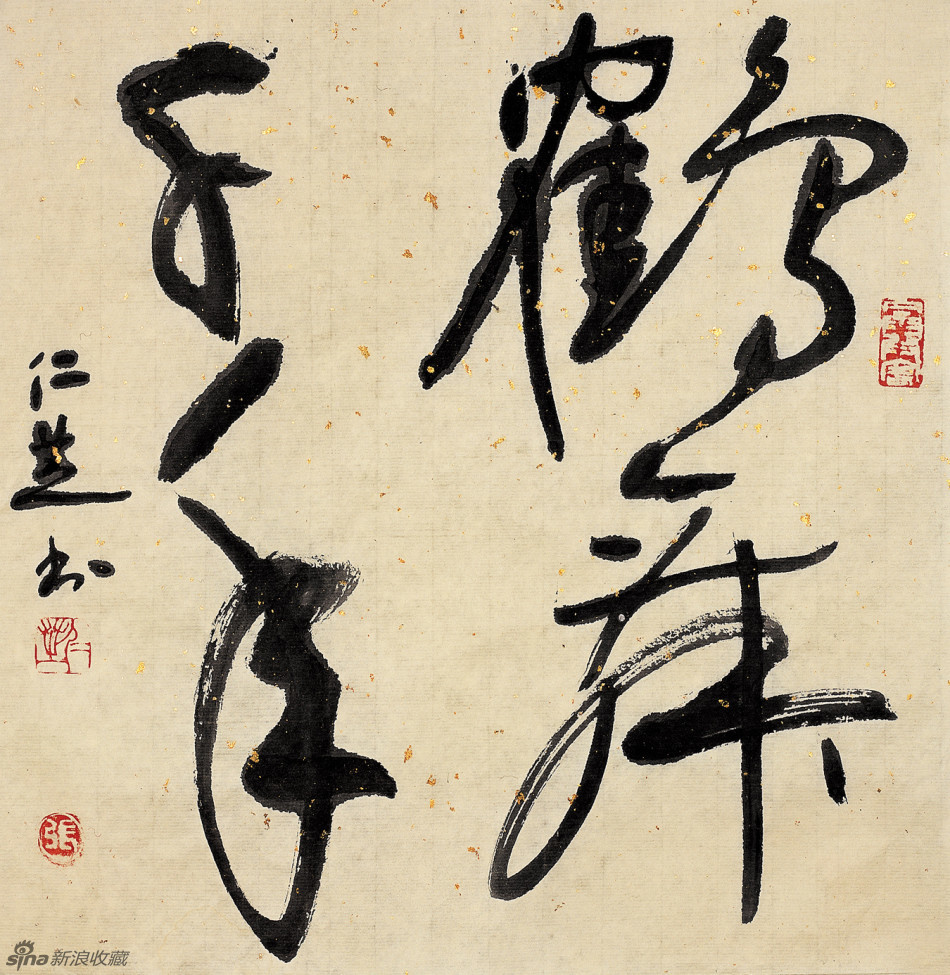 鶴舞
千年
仁芝书
張
sina 新浪收藏